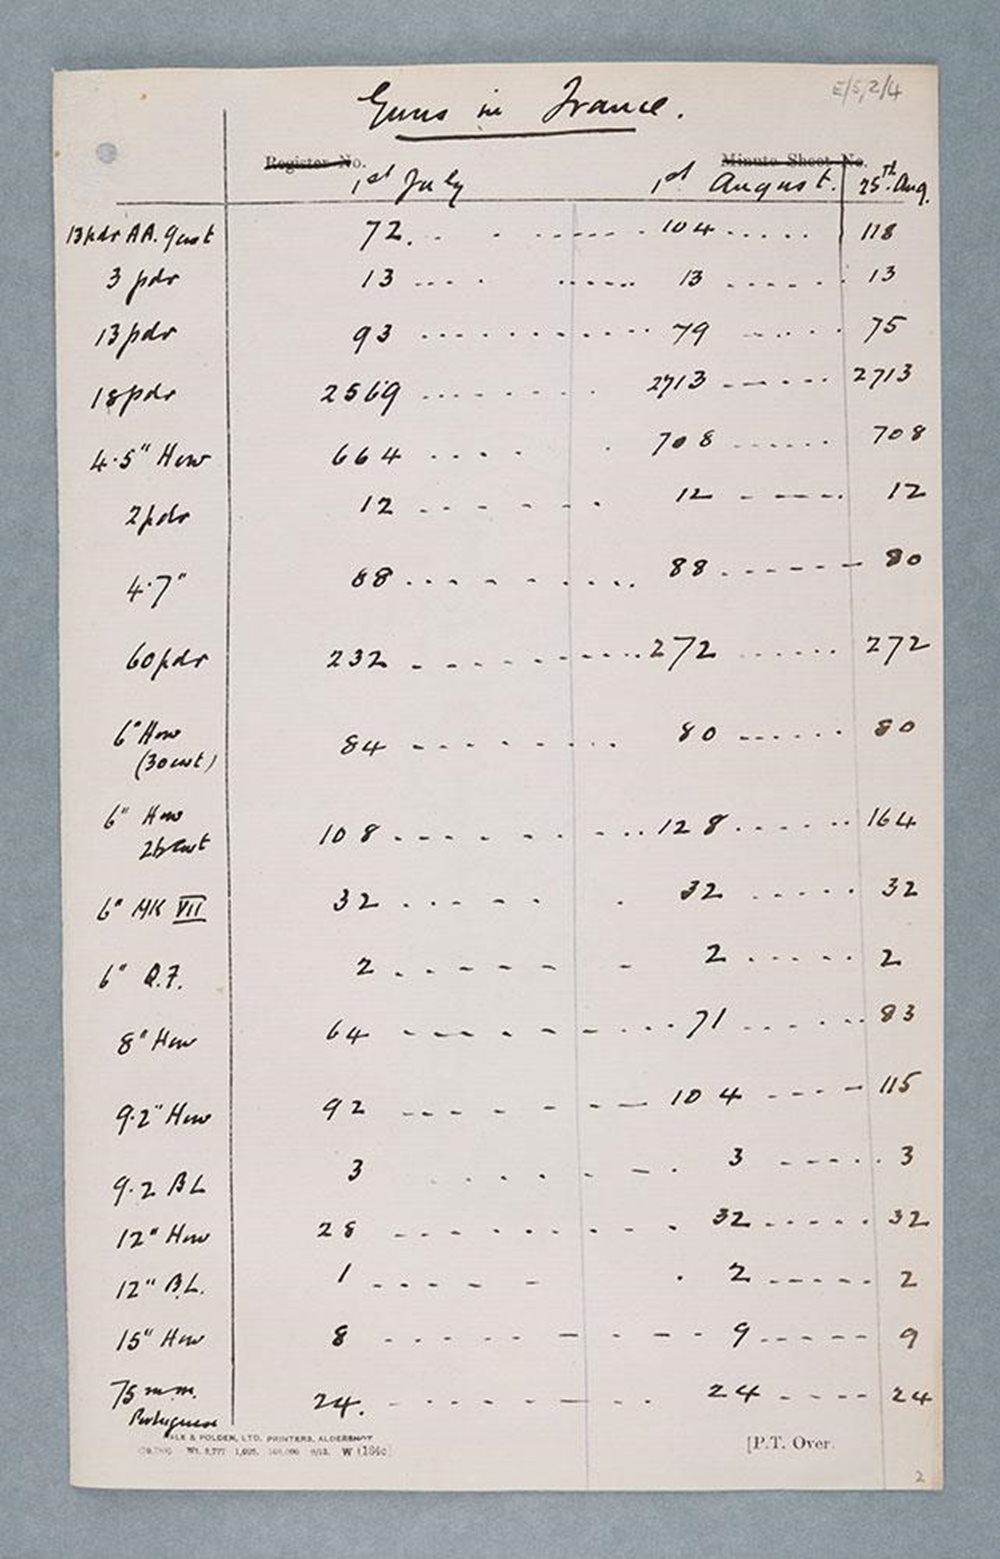 E/5,2/4
Guns in France.
Register No. Minute Sheet No.
1st July 1st August. 25th. Aug.
13pdr AA. 9cwt 72. 104 118
3 pdr 13 13 13
13pdr 93 79 75
18pdr 2569 2713 2713
4.5" How 664 708 708
2pdr 12 12 12
4.7" 88 88 80
60pdr 232 272 272
6" How 84 80 80
(30cwt)
6" How 108 128 164
26cwt
6" MK VII 32 32 32
6" Q.F. 2 2 2
8" How 64 71 83
9.2" How 92 104 115
9.2 BL 3 3 3
12" How 28 32 32
12" B.L. 1 2 2
15" How 8 9 9
75 m.m. 24. 24 24
Portuguese
ALE & POLDEN, LTD. PRINTERS, ALDERSHOT
[P.T. Over.
2